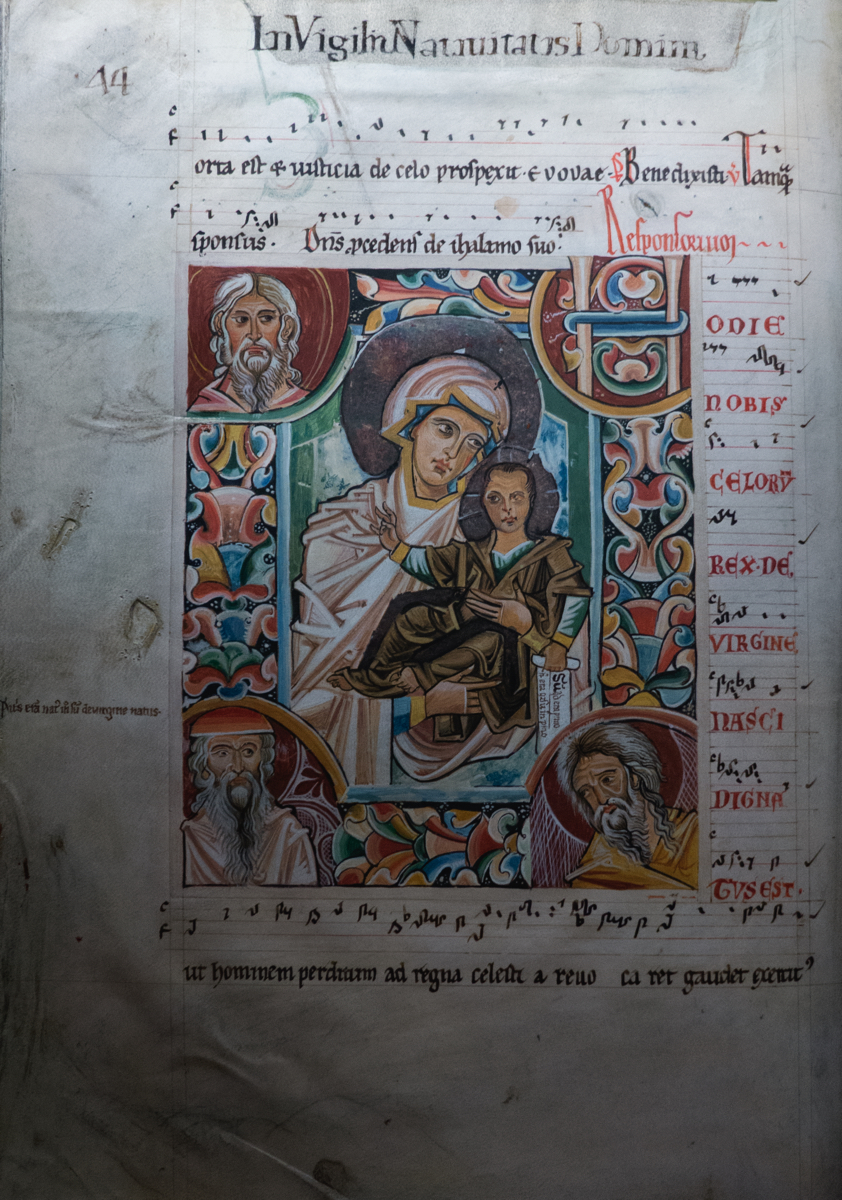 In Vigilia Natiuitatis Domini
44
orta est & iusticia de celo prospexit · E v o v a e · Benedixisti Tamq̄
sponsus · Dn̄s p̱cedens de thalamo suo · Responsorium
H
ODIE
NOBIS
CELORV̄
REX·DE·
VIRGINE
NASCI
DIGNA
TVS EST·
ut hominem perditum ad regna celesti a reuo ca ret gaudet exercit⁹